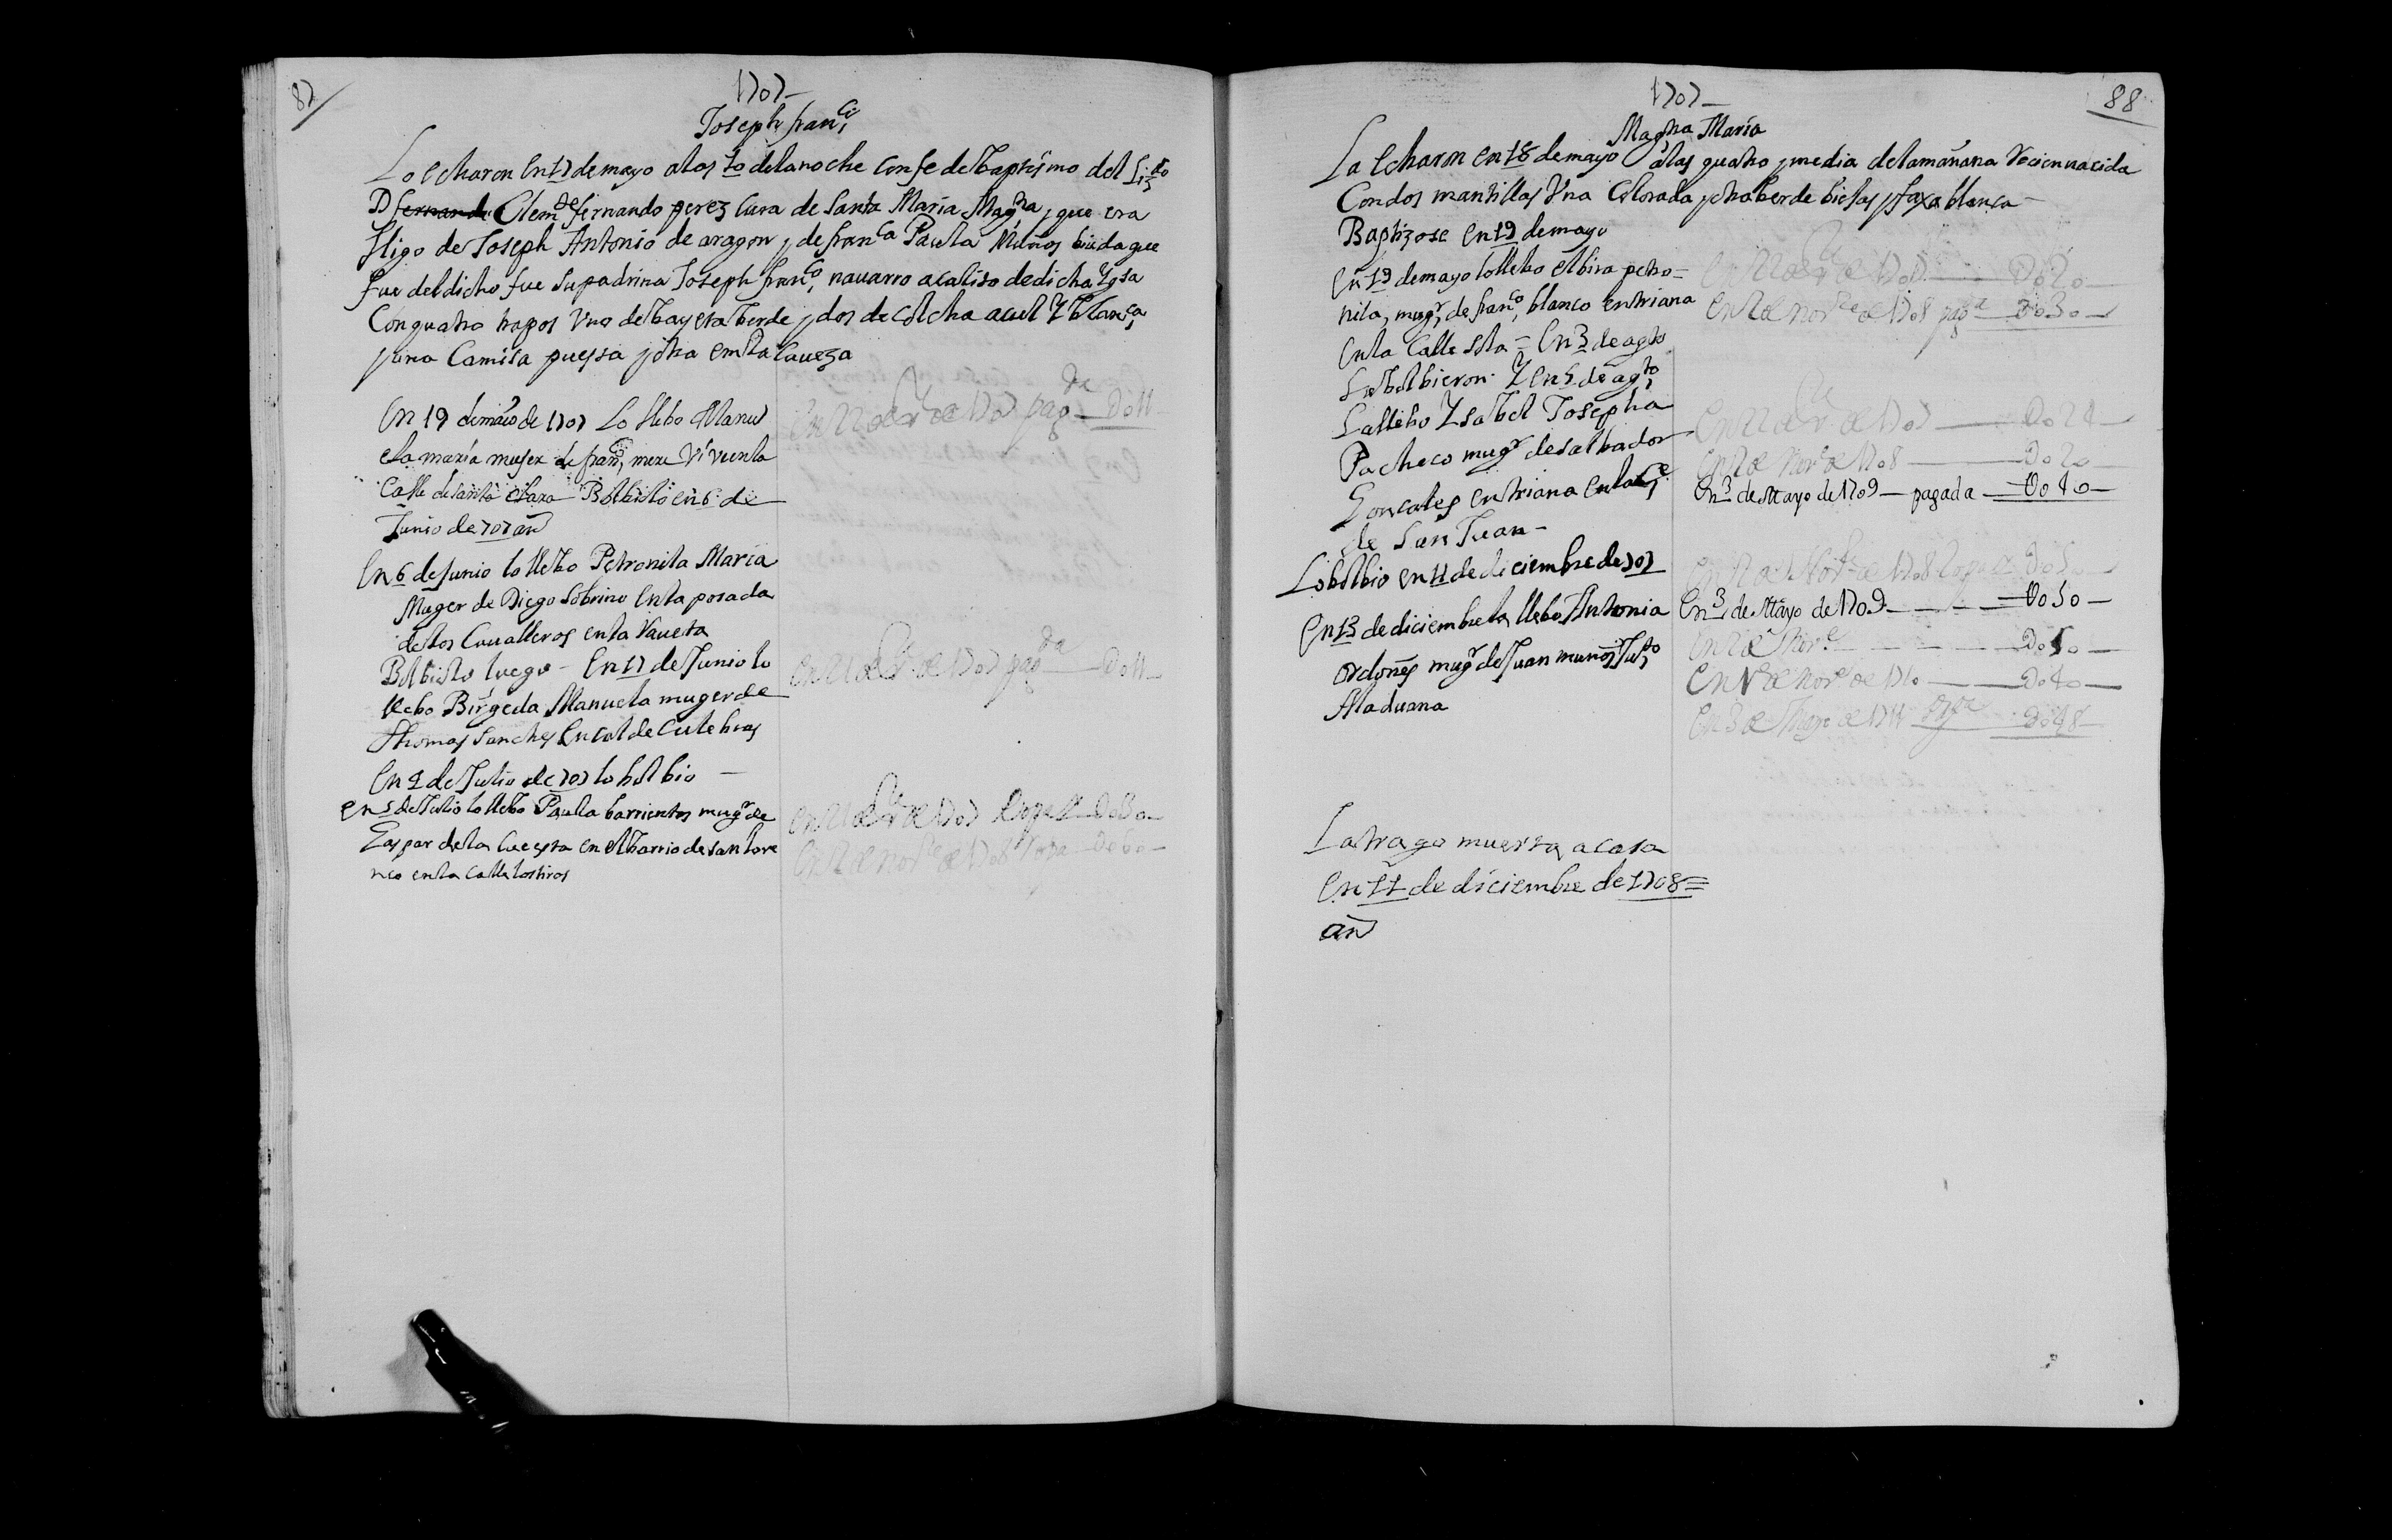 87
1707
Joseph franco
Lo echaron en 17 de mayo a las 10 de la noche con fe de baptismo del Lizdo
D fernando Clemte fernando perez Cura de Santa María Magna, que era
Higo de Joseph Antonio de aragon y de franca Paula Muños biuda que
fue del dicho fue su padrino Joseph franco nauarro acolito de dicha Ygsa
Con quatro trapos Uno de bayeta berde y dos de colcha acul Y blanca
y una Camisa puesta y otra en la Caueza
En 19 de maio de 1707 Lo llebo Manu
ela maría mujer de franco Vive en la
Calle de santa clara Bolbiolo en 6 de
Junio de 707 an
En 6 de junio lo llebo Petronila María
Muger de Diego Sobrino En la posada
de los Caualleros en la
Bolbiolo luego - En 17 de Junio lo
llebo Birgeda Manuela muger de
Thomas Sanches En cal de Culebras
En 2 de Julio de 707 lo bolbio
en 5 de Julio lo llebo Paula barrientos mugr de
Gaspar de la Cuesta en el barrio de san lore
nco en la calle los tiros
En 11 de 1707 pagda Do11
En 11 de 1707 pagda Do11
En 11 de 1707 Do30
En 1 de nore de 1708 Do60
88
1707
Magna María
La Echaron en 18 de mayo a las quatro y media de la mañana Recien nacida
Con dos mantillas Una Colorada y otra berde biejas y faxa blanca
Baptizose en 19 de mayo
En 19 de mayo lo llebo elbira petro=
nila, mugr, de franco, blanco en triana
En la Calle = En 3 de agto
La bolbieron. Y en 5 de agto
La llebo Ysabel Josepha
Pacheco mugr de salbador
Gonzales en triana en la Ce
de San Juan -
Lo bolbio en 11 de diciembre de 707
En 13 de diciembre la llebo Antonia
Ordoñes mugr de Juan muños
Aladuana
Do20
En 1 de nore de 1708 pagda Do30
En 11 de 1707 Do24
En 1 de nore de 1708 Do20
En 3 de Mayo de 1709 — pagada — Do40
En 1 de Nore de 1708 Do50
En 3 de Mayo de 1709 Do50
En 1 de nore Do50
En 1 de nore de 1710 Do40
En 3 de Mayo de 1711 Do48
La trago muerta, a casa
En 11 de diciembre de 1708 =
an